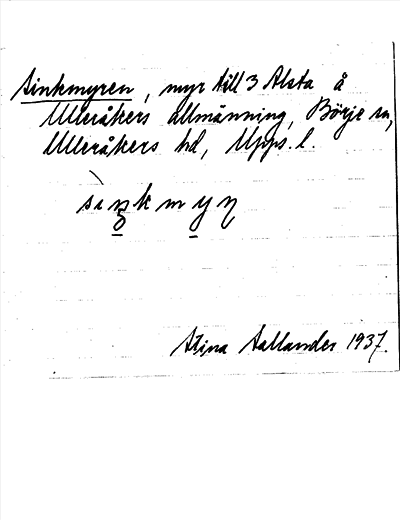 Sinkmyren, myr till 3 Alsta å
Ulleråkers allmänning, Börje sn,
Ulleråkers hd, Upps. l.
Stina Sallander 1937.